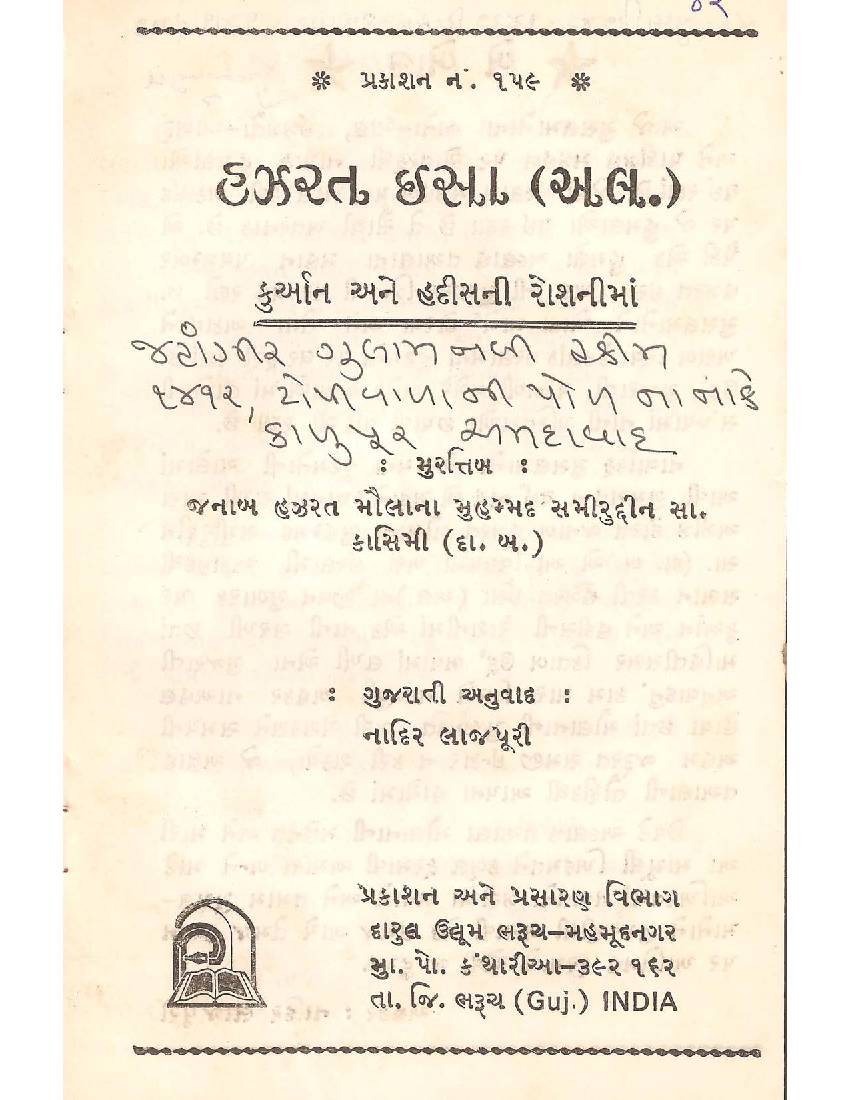 ૦૨
❊ પ્રકાશન નં. ૧૫૯ ❊
હઝરત ઇસા (અ.લ.)
કુર્આન અને હદીસની રોશનીમાં
જહાંગીર ગુલામનબી હકીમ
૧૪૧૨, ટોપીવાળાની પોળ ના નાકે
કાળુપૂર અમદાવાદ
: મુરત્તિબ :
જનાબ હઝરત મૌલાના મુહમ્મદ સમીરુદ્દીન સા.
કાસિમી (દા. બ.)
: ગુજરાતી અનુવાદ :
નાદિર લાજપૂરી
પ્રકાશન અને પ્રસારણ વિભાગ
દારુલ ઉલૂમ ભરૂચ–મહમૂદનગર
મુા. પો. કંથારીઆ–૩૯૨ ૧૬૨
તા. જિ. ભરૂચ (Guj.) INDIA